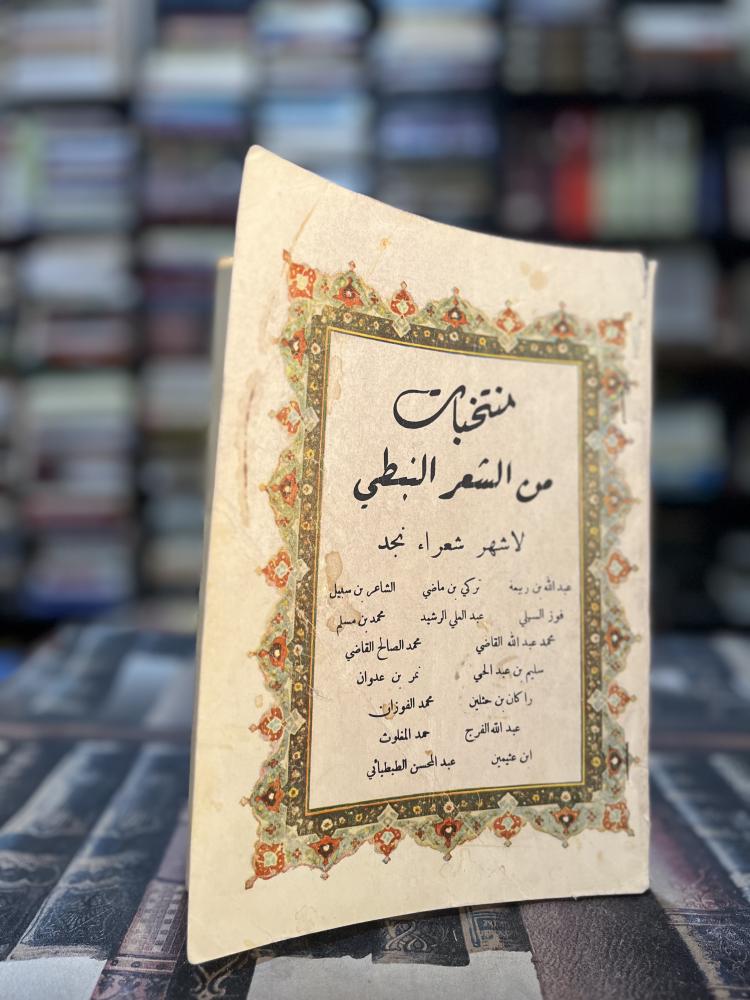 منتخبات
من الشعر النبطي
لاشهر شعراء نجد
عبد الله بن ربيعة تركي بن ماضي الشاعر بن سبيل
فوز السبلي عبد العلي الرشيد محمد بن مسلم
محمد عبد الله القاضي محمد الصالح القاضي
سليم بن عبد الحي نمر بن عدوان
راكان بن حثلين محمد الفوزان
عبد الله الفرج حمد المغلوث
ابن عثيمين عبد المحسن الطبطبائي